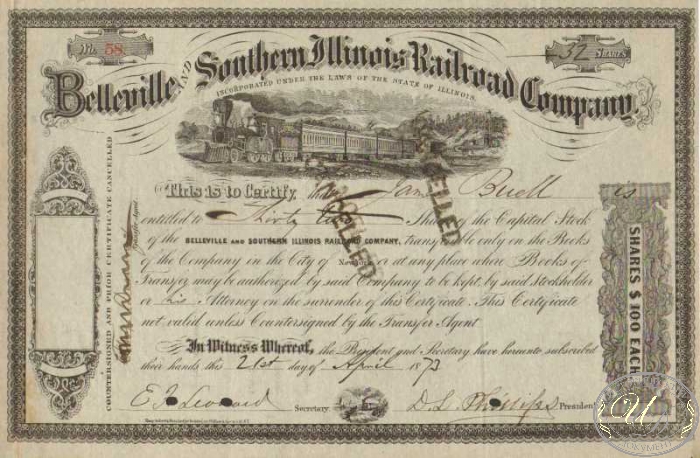 No. 58
32 SHARES
Belleville AND Southern Illinois Railroad Company.
INCORPORATED UNDER THE LAWS OF THE STATE OF ILLINOIS.
This is to Certify that Buell is
entitled to Thirty two Shares of the Capital Stock
of the BELLEVILLE AND SOUTHERN ILLINOIS RAILROAD COMPANY, transferable only on the Books
of the Company in the City of New York or at any place where Books of
Transfer may be authorized by said Company to be kept, by said Stockholder
or his Attorney on the surrender of this Certificate. This Certificate
not valid unless Countersigned by the Transfer Agent
In Witness Whereof, the President and Secretary have hereunto subscribed
their hands this 21st day of April 1873
Secretary D. L. Phillips President
COUNTERSIGNED AND PRIOR CERTIFICATE CANCELLED
Transfer Agent
SHARES $100 EACH
CANCELLED
CANCELLED